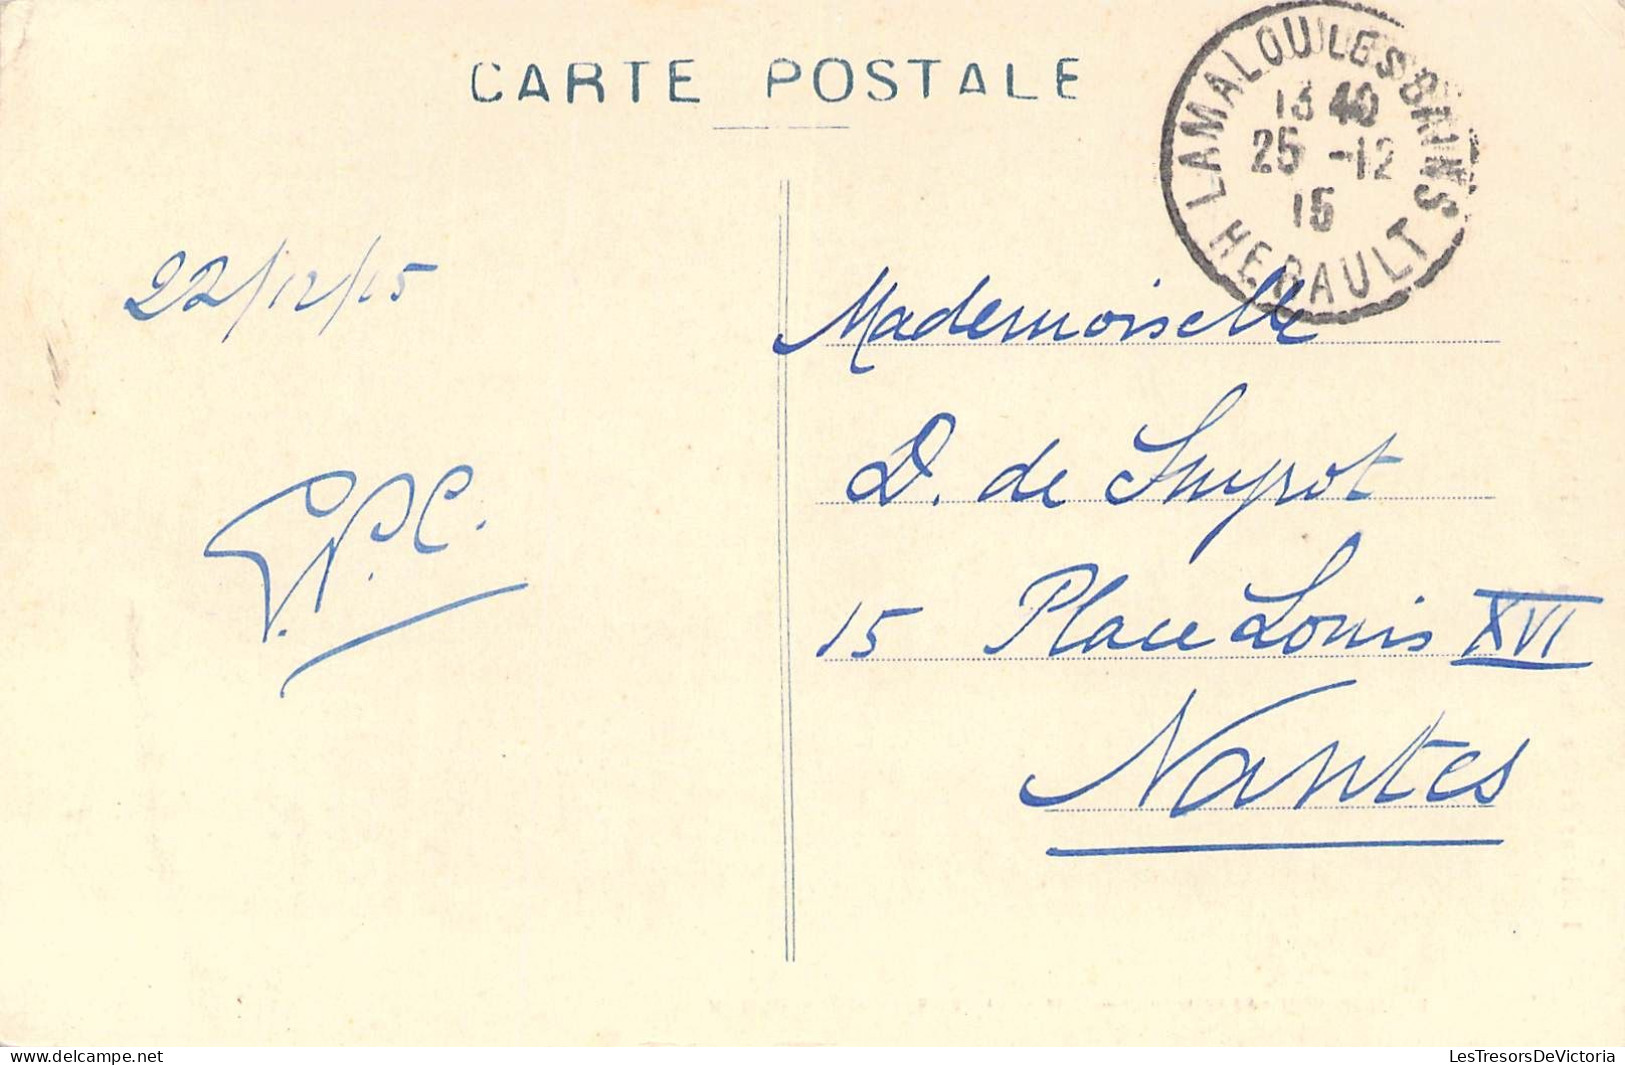 CARTE POSTALE
LAMALOU LES BAINS
13 40
25 -12
15
HERAULT
22/12/15
Mademoiselle
D. de Suyrot
15 Place Louis XVI
Nantes
www.delcampe.net
LesTresorsDeVictoria